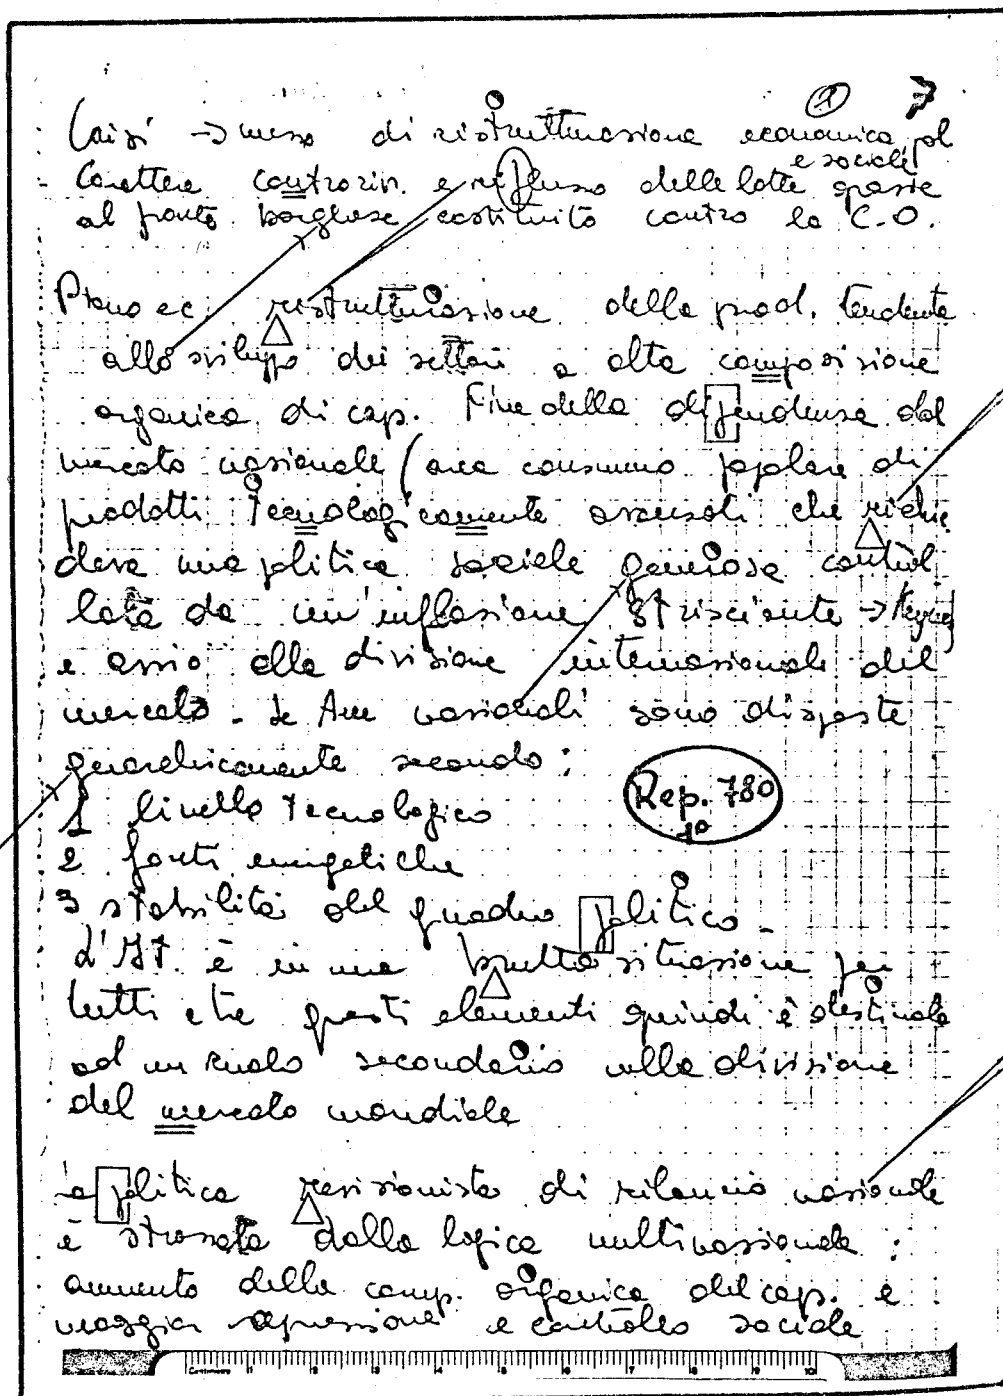 ① 7
Crisi → messo di ristrutturazione economica, pol
e sociale
Carattere controriv. e riflusso delle lotte grazie
al fronte borghese costituito contro la C.O.
Piano ec. ristrutturazione della prod. tendente
allo sviluppo dei settori a alta composizione
organica di cap. Fine della dipendenza dal
mercato nazionale (area consumo popolare di
prodotti tecnologicamente avanzati che richie
deva una politica sociale generosa control
lata da un'inflazione strisciante →
e avvio alla divisione internazionale del
mercato - Le Aree nazionali sono disposte
gerarchicamente secondo:
1 livello tecnologico
2 fonti energetiche
3 stabilità del quadro politico -
L'IT. è in una brutta situazione per
tutti e tre questi elementi quindi è destinata
ad un ruolo secondario nella divisione
del mercato mondiale
Rep. 780
1°
La politica revisionista di rilancio nazionale
è stroncata dalla logica multinazionale:
aumento della comp. organica del cap. e
maggior repressione e controllo sociale
Centimetri 1 2 3 4 5 6 7 8 9 10